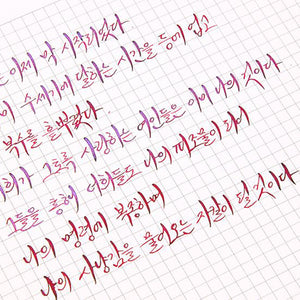 는 이제 막 시작되었다
이 수세기에 달하는 시간을 등에 업고
복수를 흩뿌렸다
희가 그토록 사랑하는 여인들은 이미 나의 것이다
그들을 통해 너희들도 나의 피조물이 되어
나의 명령에 복종하며
나의 사냥감을 물어오는 자칼이 될 것이다